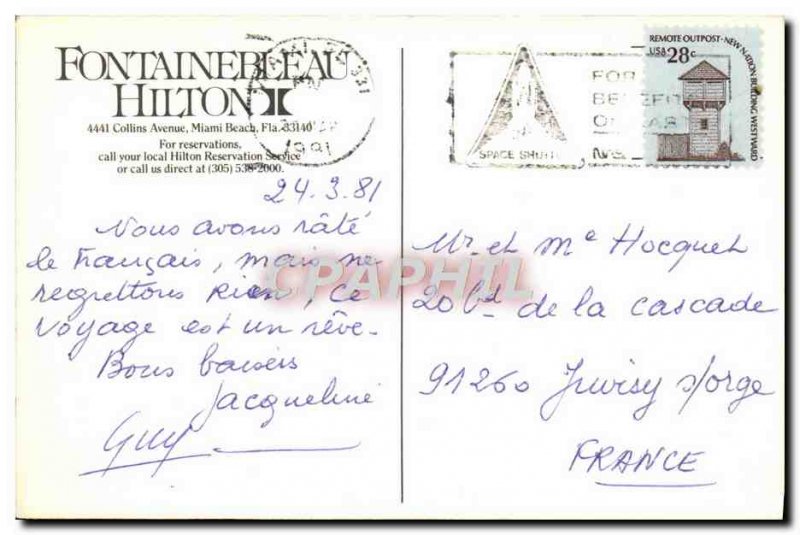 FONTAINEBLEAU
HILTON
4441 Collins Avenue, Miami Beach, Fla. 33140
For reservations,
call your local Hilton Reservation Service
or call us direct at (305) 538-2000.
24.3.81
Nous avons râté
le français, mais ne
regrettons rien, ce
voyage est un rêve.
Bons baisers
Jacqueline
Guy
331
1981
SPACE SHUTTLE
FOR
BENEFIT
OF
REMOTE OUTPOST · NEW NATION BUILDING WESTWARD
USA 28c
Mr et Me Hocquet
20 bd de la cascade
91260 Juvisy s/orge
FRANCE
CPAPHIL